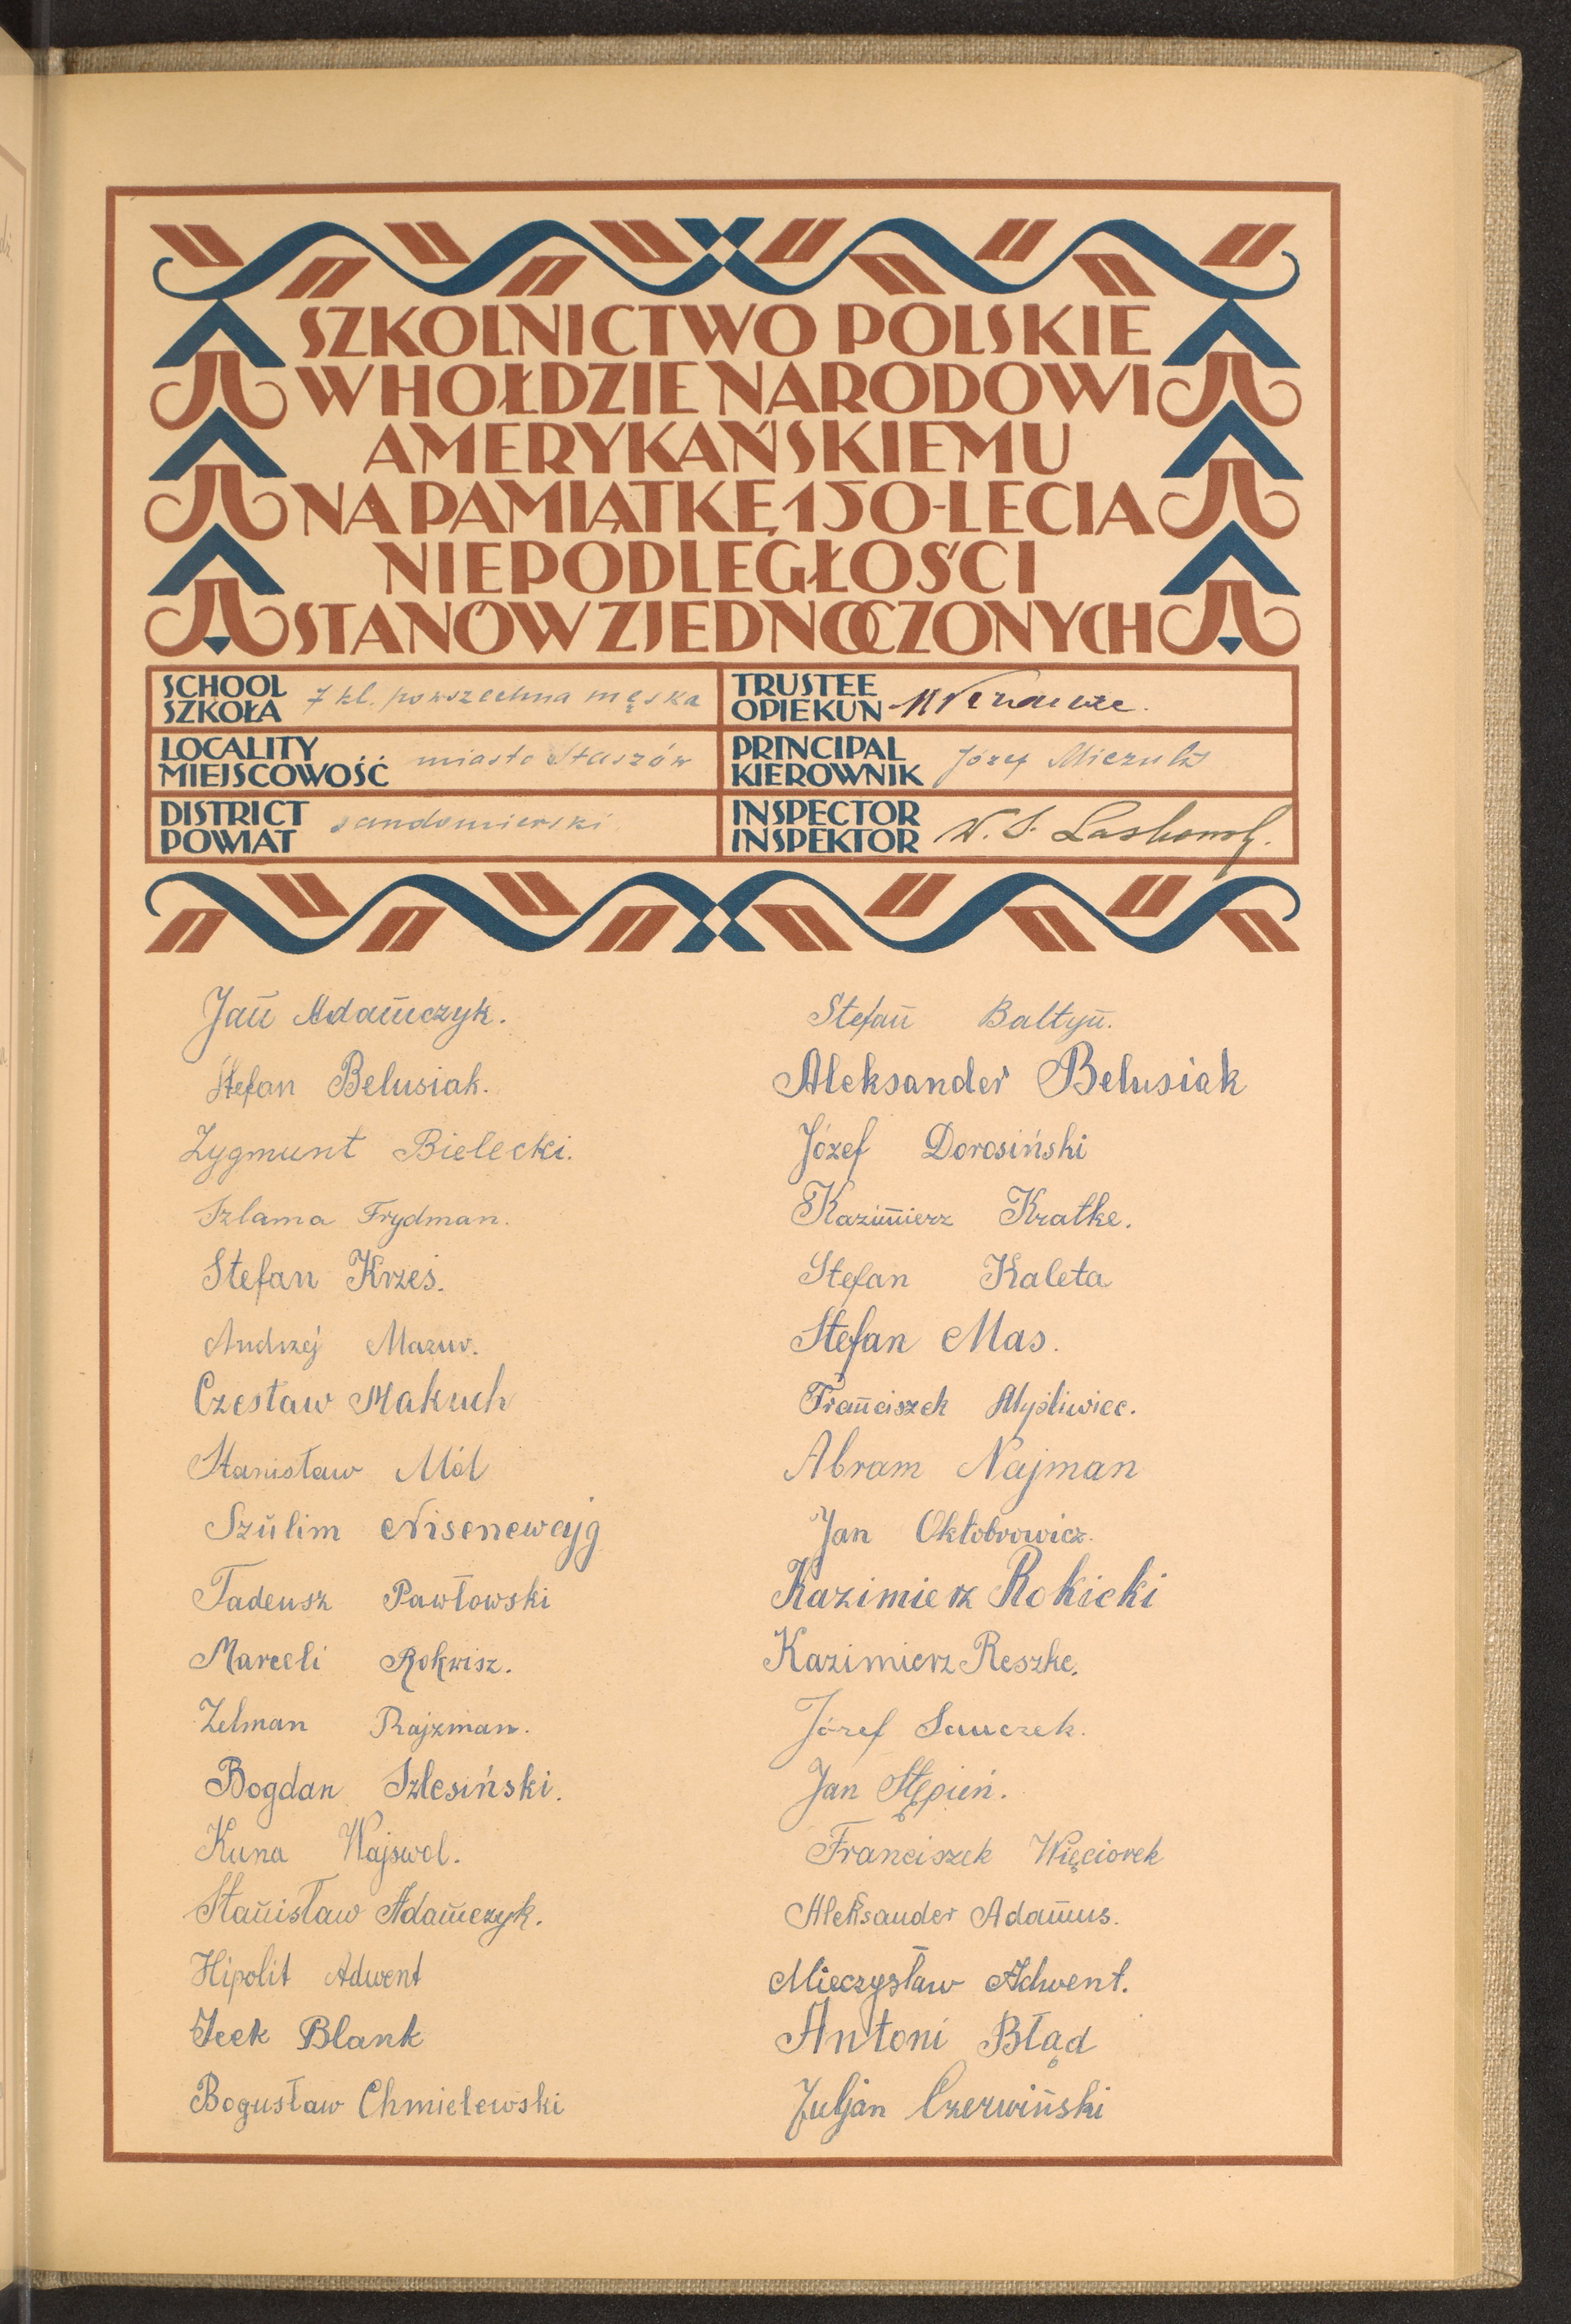 SZKOLNICTWO POLSKIE
W HOŁDZIE NARODOWI
AMERYKAŃSKIEMU
NA PAMIĄTKĘ 150-LECIA
NIEPODLEGŁOŚCI
STANÓW ZJEDNOCZONYCH
SCHOOL
SZKOŁA
7 kl. powszechna męska
TRUSTEE
OPIEKUN
LOCALITY
MIEJSCOWOŚĆ
miasto Staszów
PRINCIPAL
KIEROWNIK
Józef
DISTRICT
POWIAT
sandomierski
INSPECTOR
INSPEKTOR
W. S.
Jan Adamczyk.
Stefan Baltyn.
Stefan Belusiak.
Aleksander Belusiak
Zygmunt Bielecki.
Józef Dorosiński
Szlama Frydman.
Kazimierz Kratke.
Stefan Krześ.
Stefan Kaleta
Andrzej Mazur.
Stefan Mas.
Czesław Makuch
Franciszek Myśliwiec.
Stanisław Mól
Abram Najman
Szulim Nisenewcyjg
Jan Oktobrowicz.
Tadeusz Pawłowski
Kazimierz Rokicki
Marceli Rokwisz.
Kazimierz Reszke.
Zelman Rajzman.
Józef Sauczek.
Bogdan Szlesiński.
Jan Stępień.
Kuna Wajswol.
Franciszek Więciorek
Stanisław Adamczyk.
Aleksander Adamus.
Hipolit Adwent
Mieczysław Adwent.
Icek Blank
Antoni Błąd
Bogusław Chmielewski
Juljan Czerwiński